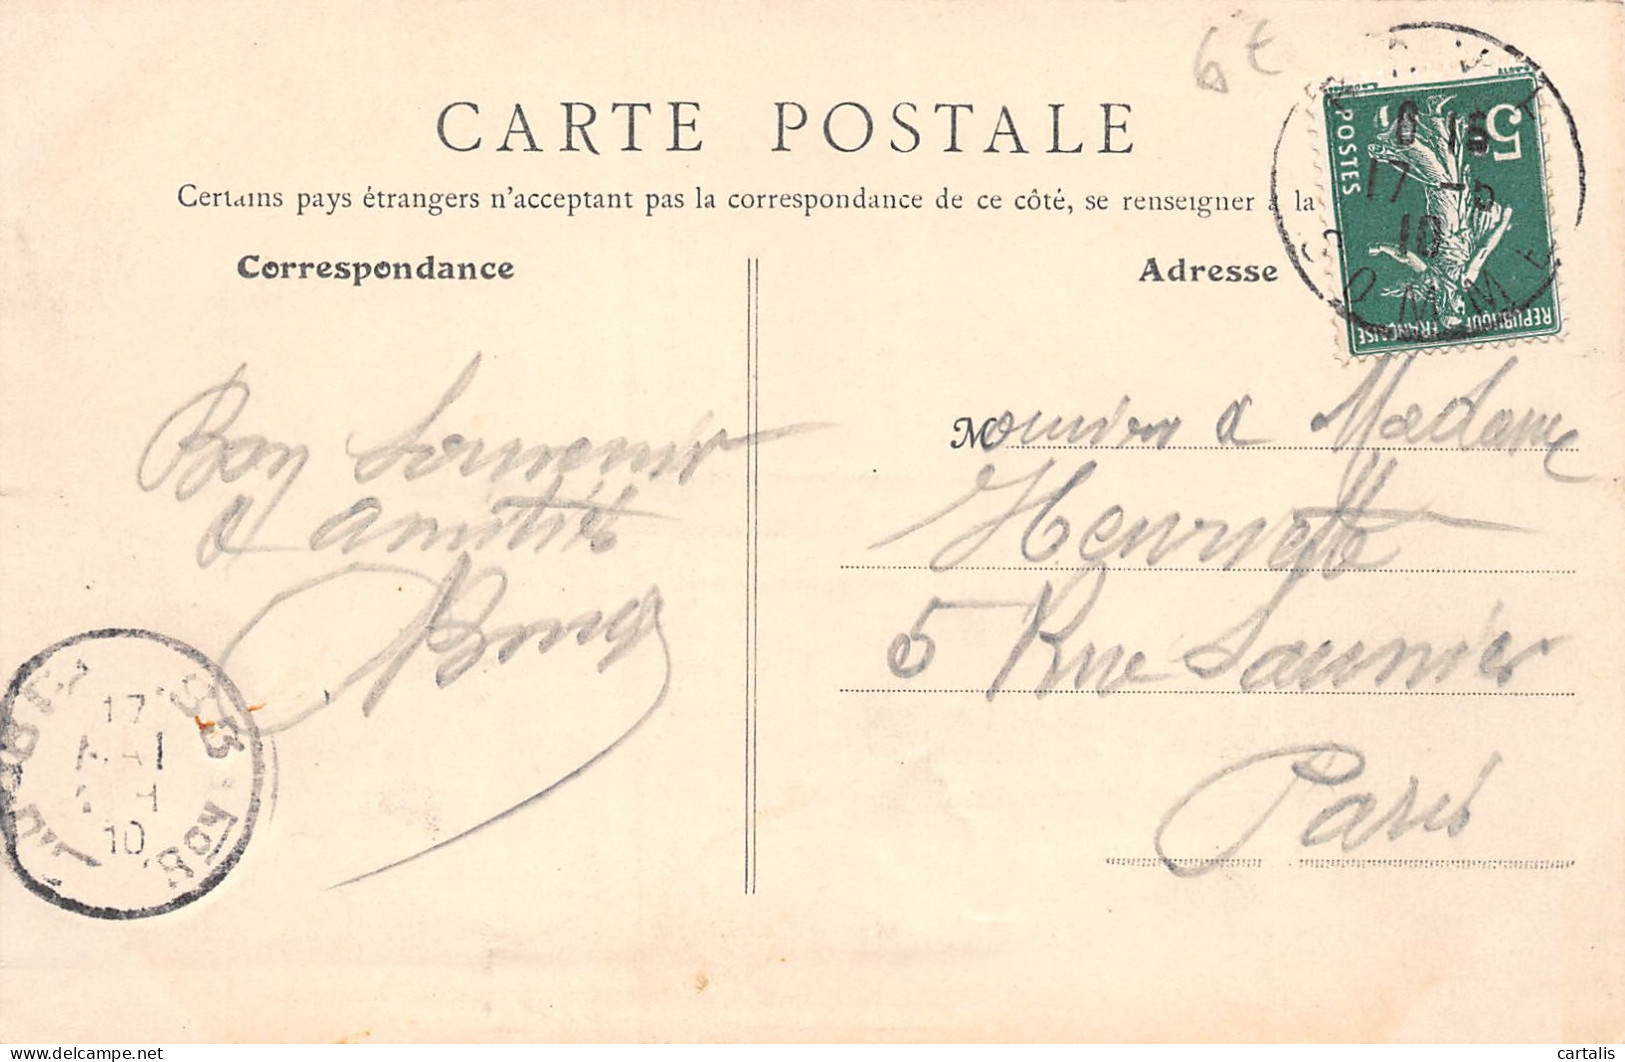 6€
CARTE POSTALE
Certains pays étrangers n'acceptant pas la correspondance de ce côté, se renseigner à la
Correspondance
Adresse
5
POSTES
REPUBLIQUE FRANÇAISE
17 -5
10
SOMME
Bon Souvenir
& amitiés
Monsieur & Madame
Henriette
5 Rue Saunier
Paris
17
MAI
10
delcampe.net
cartalis